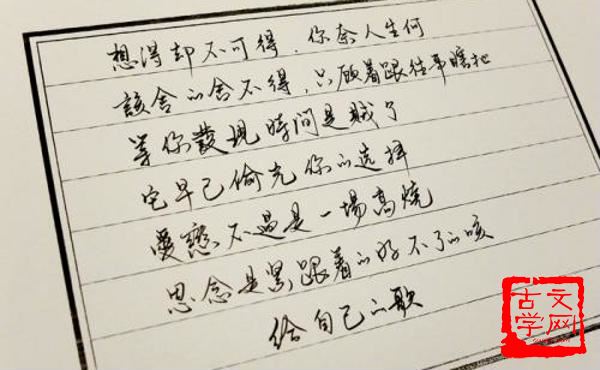 想得却不可得，你奈人生何
該舍的舍不得，只顾着跟往事瞎扯
等你發現時間是贼了
它早已偷光你的选择
愛戀不過是一場高燒
思念是紧跟着的好不了的咳
給自己的歌
古文
学网